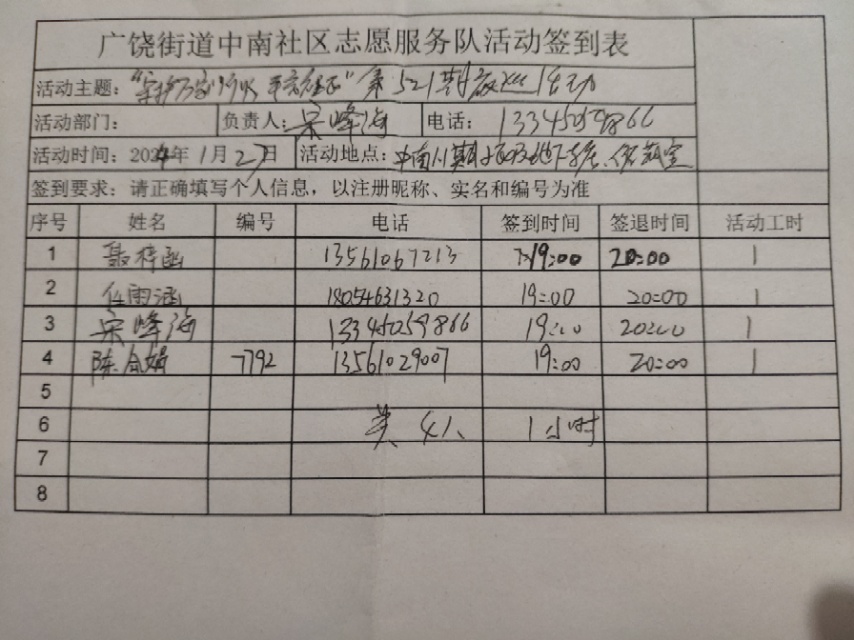 广饶街道中南社区志愿服务队活动签到表
活动主题： 第521期夜巡活动
活动部门： 负责人：宋峰海 电话：13345059866
活动时间：2024年1月27日 活动地点：中南11期
签到要求：请正确填写个人信息，以注册昵称、实名和编号为准
序号 姓名 编号 电话 签到时间 签退时间 活动工时
1 聂梓涵 13561067213 19:00 20:00 1
2 任雨涵 18054631320 19:00 20:00 1
3 宋峰海 13345059866 19:00 20:00 1
4 陈 娟 7792 13561029007 19:00 20:00 1
5
6 共 4人 1小时
7
8